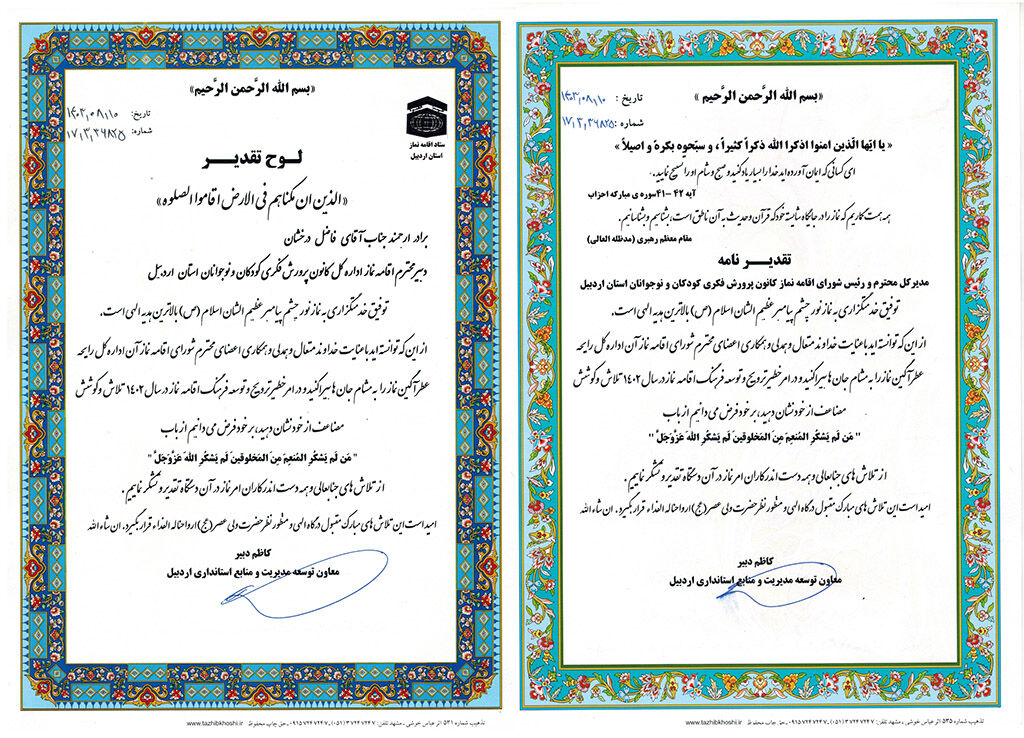 «بسم الله الرَّحمن الرَّحیم»
تاریخ: ۱۴۰۳٫۰۸٫۱۰
شماره: ۱۷٫۳٫۳۶۸۲۵
ستاد اقامه نماز
استان اردبیل
لوح تقدیر
«الذین ان مکناهم فی الارض اقاموا الصلوه»
برادر ارجمند جناب آقای فاضل درخشان
دبیر محترم اقامه نماز اداره کل کانون پرورش فکری کودکان و نوجوانان استان اردبیل
توفیق خدمتگزاری به نماز نور چشم پیامبر عظیم الشان اسلام (ص) بالاترین هدیه الهی است.
از این که توانسته اید با عنایت خداوند متعال و همدلی و همکاری اعضای محترم شورای اقامه نماز آن اداره کل رایحه
عطرآگین نماز را به مشام جان ها سپراکنید و در امر خطیر ترویج و توسعه فرهنگ اقامه نماز در سال ۱۴۰۲ تلاش و کوشش
مضاعف از خود نشان دهید، بر خود فرض می دانیم از باب
" مَن لَم یَشکُرِ المُنعِمَ مِنَ المَخلوقینَ لَم یَشکُرِ اللهَ عَزَّوَجَلَّ "
از تلاش های جنابعالی و همه دست اندرکاران امر نماز در آن دستگاه تقدیر و تشکر نماییم.
امید است این تلاش های مبارک مقبول درگاه الهی و منظور نظر حضرت ولی عصر (عج) ارواحنا له الفداء قرار بگیرد. ان شاء الله
کاظم دبیر
معاون توسعه مدیریت و منابع استانداری اردبیل
تذهیب شماره ۵۳۱ اثر عباس خوشی ، مشهد تلفن: ۳۷۲۴۷۲۴۷ (۰۵۱) ، ۰۹۱۵۷۲۴۷۲۴۷ ، حق چاپ محفوظ www.tazhibkhoshi.ir
«بسم الله الرَّحمن الرَّحیم»
تاریخ : ۱۴۰۳٫۰۸٫۱۰
شماره : ۱۷٫۳٫۳۶۸۲۵
« یا ایّها الّذین امنوا اذکرا الله ذکراً کثیراً ، و سبّحوه بکرهً و اصیلاً »
ای کسانی که ایمان آورده اید خدا را بسیار یاد کنید و صبح و شام او را تسبیح نمایید.
آیه ۴۲ –۴۱سوره ی مبارکه احزاب
همه همت کاریم که نماز را در جایگاه شایسته خود که قرآن و حدیث به آن ناطق است: بشناسیم و بشناسانیم.
مقام معظم رهبری (مدظله العالی)
تقدیر نامه
مدیرکل محترم و رئیس شورای اقامه نماز کانون پرورش فکری کودکان و نوجوانان استان اردبیل
توفیق خدمتگزاری به نماز نور چشم پیامبر عظیم الشان اسلام (ص) بالاترین هدیه الهی است.
از این که توانسته اید با عنایت خداوند متعال و همدلی و همکاری اعضای محترم شورای اقامه نماز آن اداره کل رایحه
عطرآگین نماز را به مشام جان ها سپراکنید و در امر خطیر ترویج و توسعه فرهنگ اقامه نماز در سال ۱۴۰۲ تلاش و کوشش
مضاعف از خود نشان دهید، بر خود فرض می دانیم از باب
" مَن لَم یَشکُرِ المُنعِمَ مِنَ المَخلوقینَ لَم یَشکُرِ اللهَ عَزَّوَجَلَّ "
از تلاش های جنابعالی و همه دست اندرکاران امر نماز در آن دستگاه تقدیر و تشکر نماییم.
امید است این تلاش های مبارک مقبول درگاه الهی و منظور نظر حضرت ولی عصر (عج) ارواحنا له الفداء قرار بگیرد. ان شاء الله
کاظم دبیر
معاون توسعه مدیریت و منابع استانداری اردبیل
تذهیب شماره ۵۳۵ اثر عباس خوشی ، مشهد تلفن: ۳۷۲۴۷۲۴۷ (۰۵۱) ، ۰۹۱۵۷۲۴۷۲۴۷ ، حق چاپ محفوظ www.tazhibkhoshi.ir